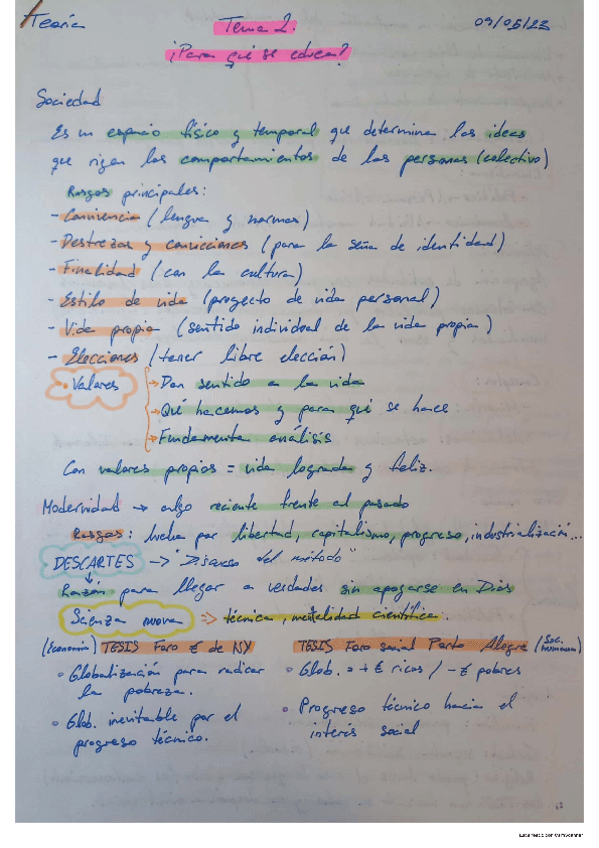 Teoría
Tema 2.
09/05/23
¿Para qué se educa?
Sociedad
Es un espacio físico y temporal que determina las ideas
que rigen los comportamientos de las personas (colectivo)
Rasgos principales:
- Convivencia (lengua y normas)
- Destrezas y convicciones (para la seña de identidad)
- Finalidad (con la cultura)
- Estilo de vida (proyecto de vida personal)
- Vida propia (sentido individual de la vida propia)
- Elecciones (tener libre elección)
• Valores
→ Dan sentido a la vida
→ Qué hacemos y para qué se hace
→ Fundamenta análisis
Con valores propios = vida lograda y feliz.
Modernidad → algo reciente frente al pasado
Rasgos: lucha por libertad, capitalismo, progreso, industrialización...
DESCARTES → "Discurso del método"
↓
Razón para llegar a verdades sin apoyarse en Dios
Scienza nuova => técnica, mentalidad científica.
(Economía) TESIS Foro € de NY
• Globalización para radicar
la pobreza.
• Glob. inevitable por el
progreso técnico.
TESIS Foro social Porto Alegre (Soc.
• Glob. = + € ricos / - € pobres
• Progreso técnico hacia el
interés social